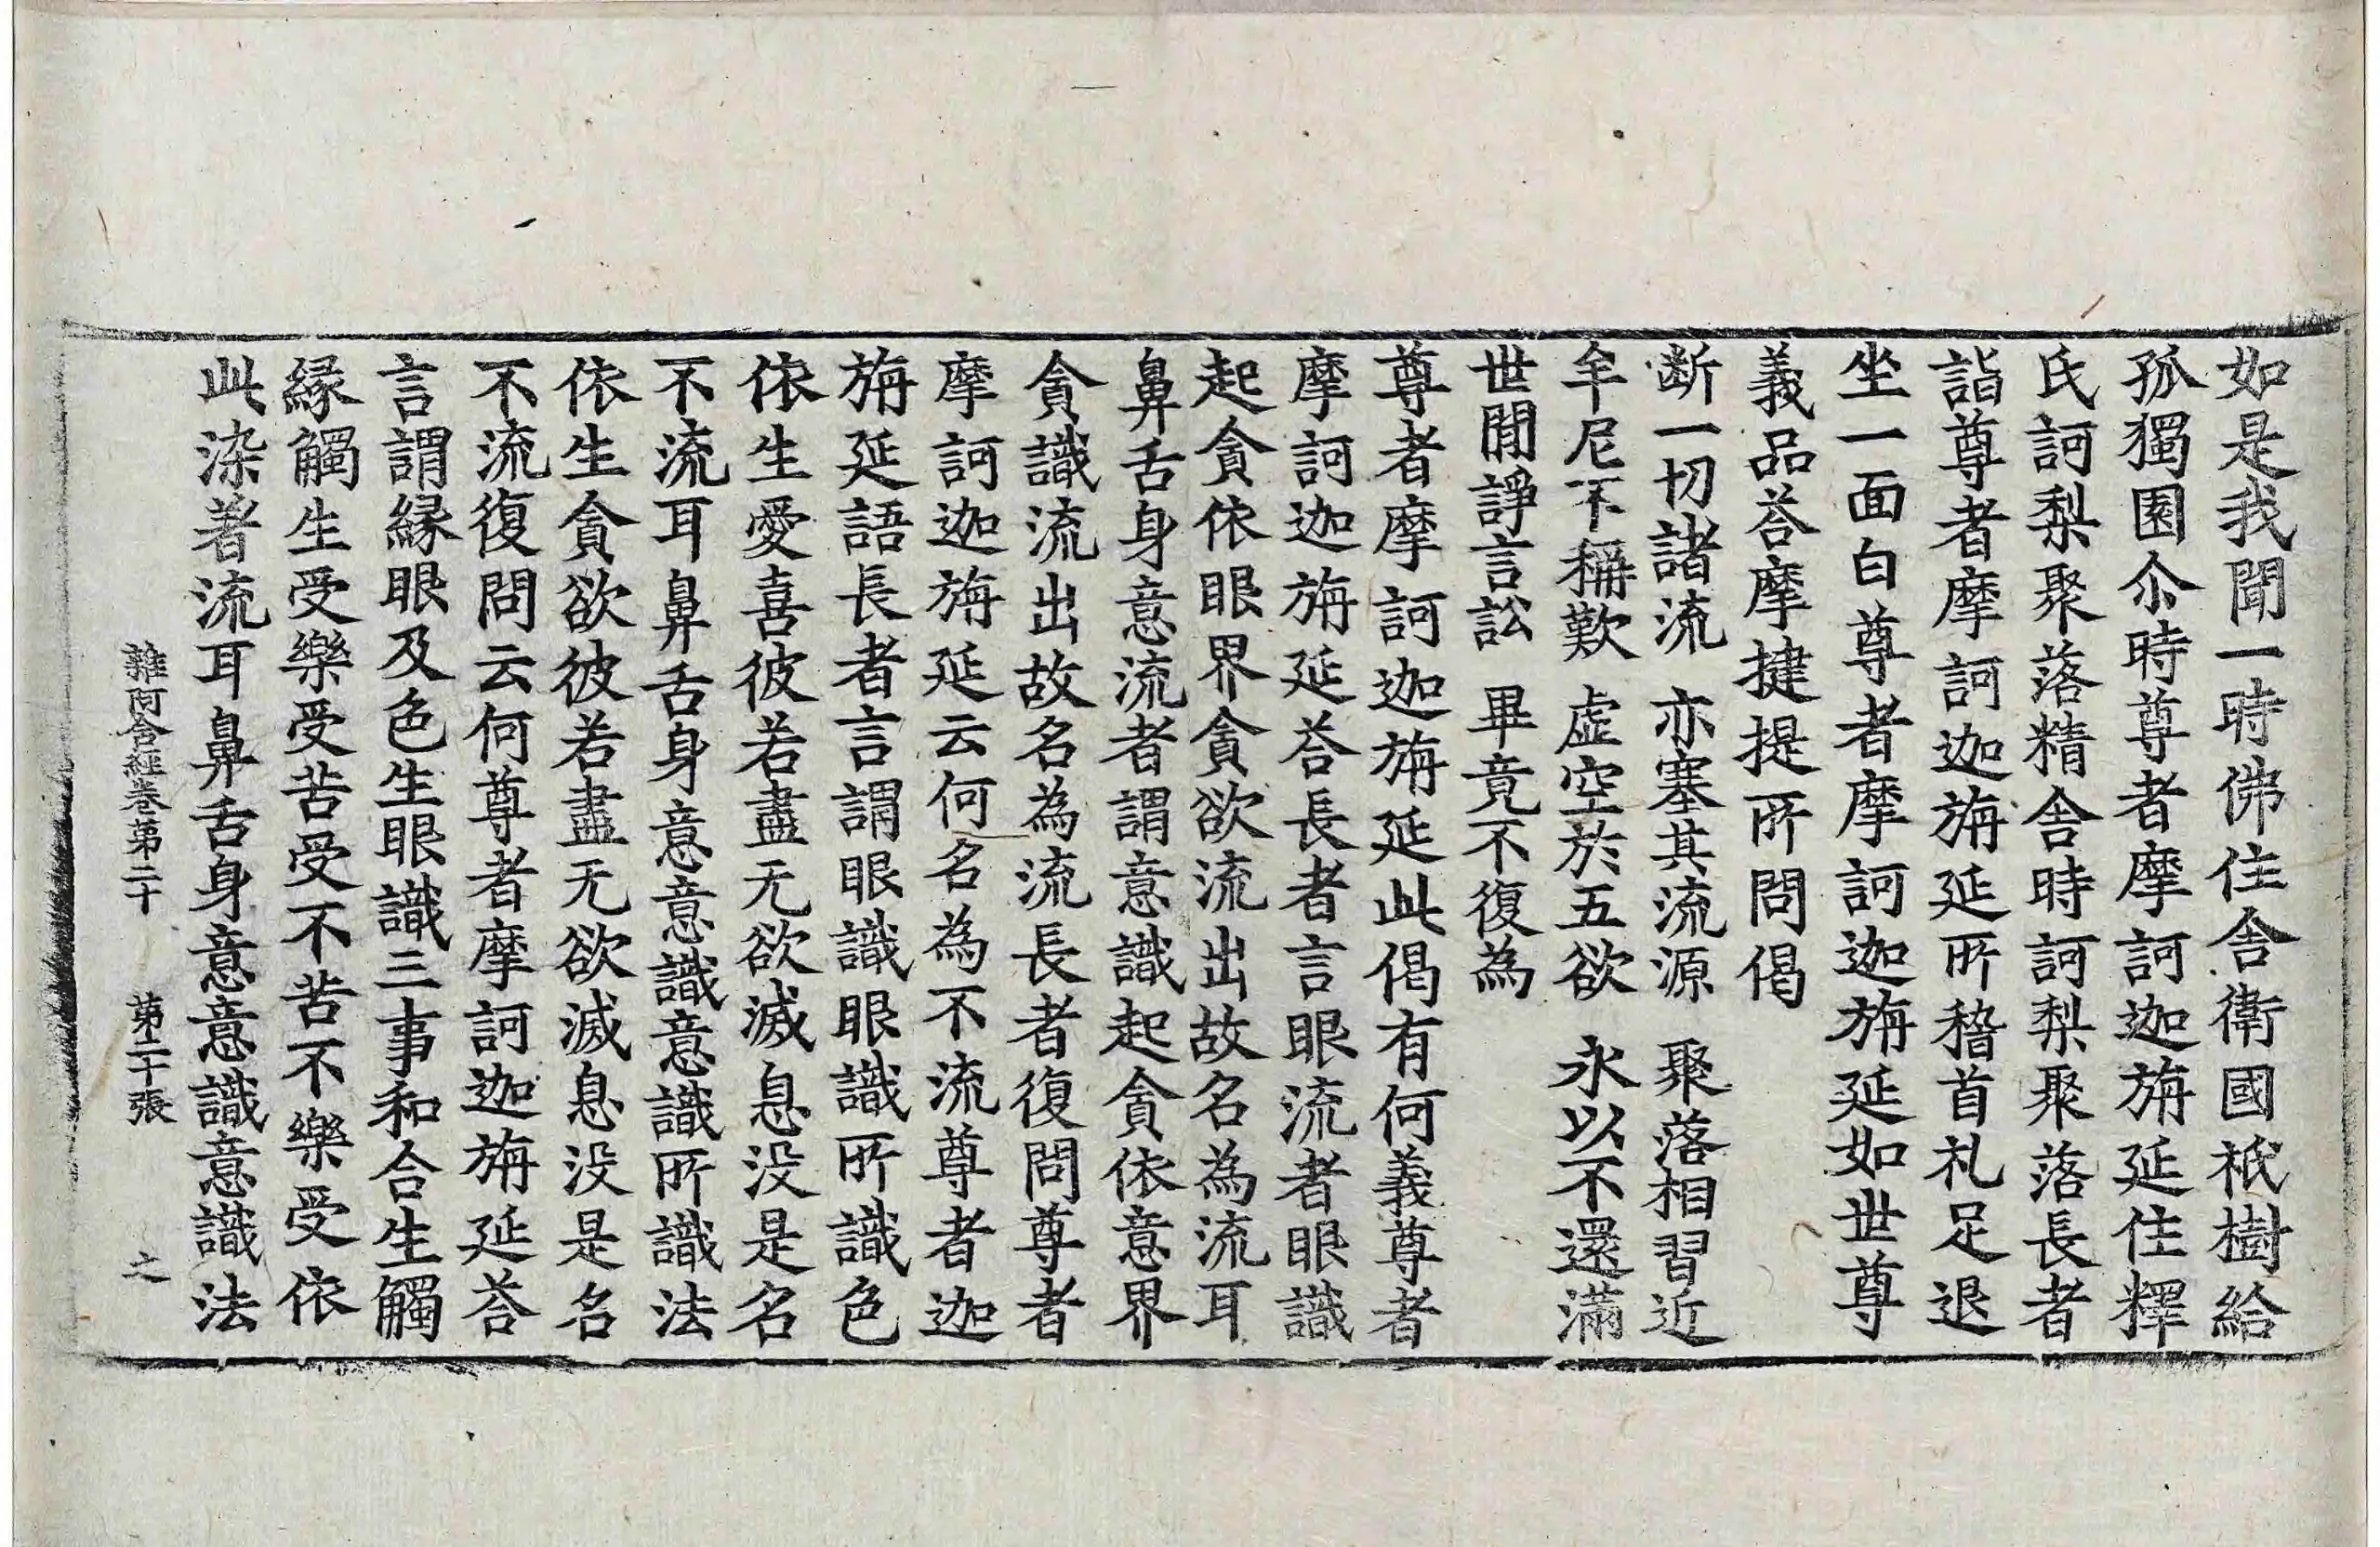 如是我聞一時佛住舍衛國祇樹給
孤獨園尒時尊者摩訶迦旃延住釋
氏訶梨聚落精舍時訶梨聚落長者
詣尊者摩訶迦旃延所稽首礼足退
坐一面白尊者摩訶迦旃延如世尊
義品荅摩揵提所問偈
断一切諸流　亦塞其流源　聚落相習近
牟尼不稱歎　虛空於五欲　永以不還滿
世間諍言訟　畢竟不復為
尊者摩訶迦旃延此偈有何義尊者
摩訶迦旃延荅長者言眼流者眼識
起貪依眼界貪欲流出故名為流耳
鼻舌身意流者謂意識起貪依意界
貪識流出故名為流長者復問尊者
摩訶迦旃延云何名為不流尊者迦
旃延語長者言謂眼識眼識所識色
依生愛喜彼若盡无欲滅息没是名
不流耳鼻舌身意意識意識所識法
依生貪欲彼若盡无欲滅息没是名
不流復問云何尊者摩訶迦旃延荅
言謂縁眼及色生眼識三事和合生觸
縁觸生受樂受苦受不苦不樂受依
此染著流耳鼻舌身意意識意識法
雜阿含經卷第二十　第二十張　之